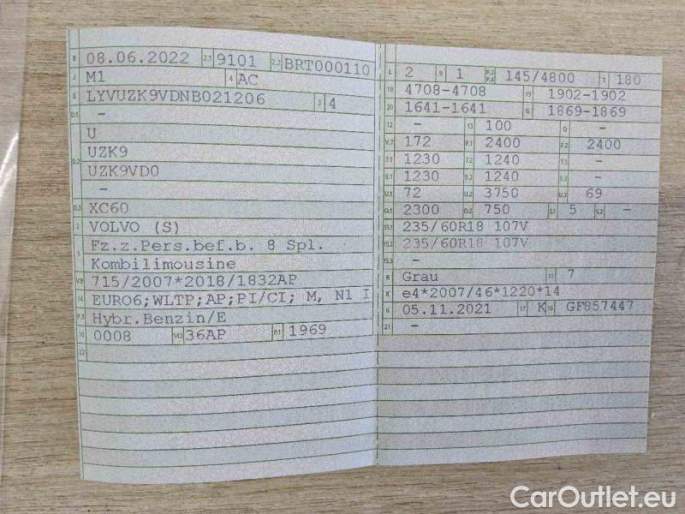 08.06.2022 9101 BRT000110
M1 AC
LYVUZK9VDNB021206 4
-
U
UZK9
UZK9VD0
-
XC60
VOLVO (S)
Fz.z.Pers.bef.b. 8 Spl.
Kombilimousine
715/2007*2018/1832AP
EURO6;WLTP;AP;PI/CI; M, N1 I
Hybr.Benzin/E
0008 36AP 1969
2 1 145/4800 180
4708-4708 1902-1902
1641-1641 1869-1869
- 100 -
172 2400 2400
1230 1240 -
1230 1240 -
72 3750 69
2300 750 5 -
235/60R18 107V
235/60R18 107V
-
Grau 7
e4*2007/46*1220*14
05.11.2021 K GF857447
-
CarOutlet.eu